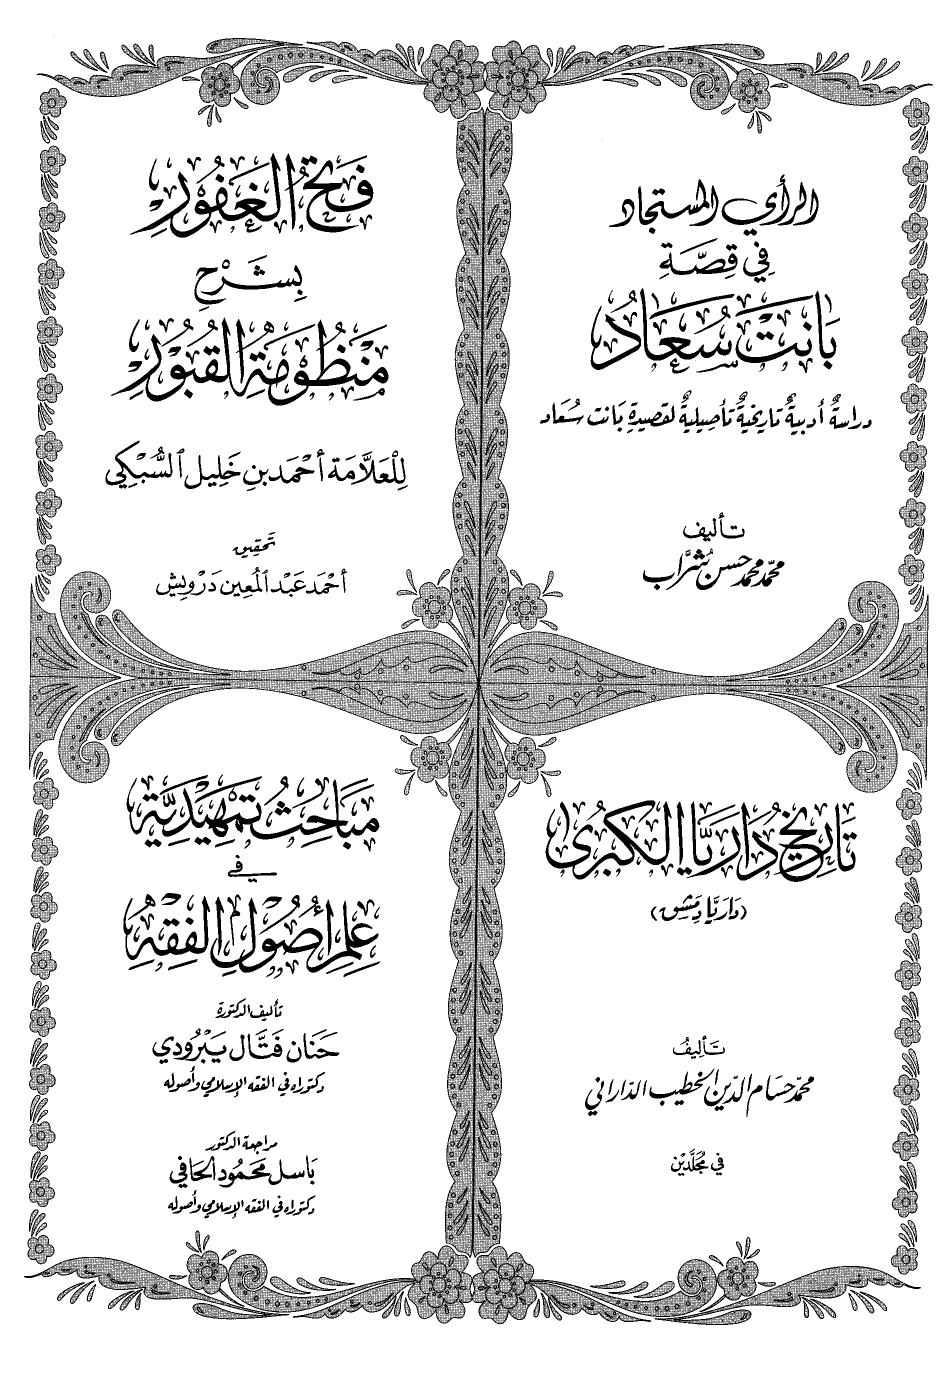 الرأي المستجاد
في قِصَّةِ
بَانَتْ سُعَادُ
دراسةٌ أدبيةٌ تاريخيةٌ تأصيليةٌ لقصيدةِ بَانت سُعَاد
تأليف
محمّد محمّد حسن شُرَّاب
فَتْحُ الغَفُورِ
بِشَرْحِ
مَنْظُومَةِ القُبُورِ
لِلْعَلَّامَة أحْمَد بنِ خَليل السُّبْكِي
تحقيق
أحْمَد عَبْد المُعِين دَرْويش
تَاريْخُ دَاريَّا الكُبْرىٰ
(دَاريَّا دِمَشق)
تَأليفُ
محمّد حسَام الدّين الخطيب الدّاراني
في مُجَلَّدَيْن
مَبَاحِثُ تمْهِيْدِيَّة
في
عِلمِ أُصُولِ الفِقْهِ
تأليف الدكتورة
حَنَان فَتَّال يَبْرُودي
دكتوراه في الفقه الإسلامي وأصوله
مراجعة الدكتور
بَاسل محمُود الحَافي
دكتوراه في الفقه الإسلامي وأصوله